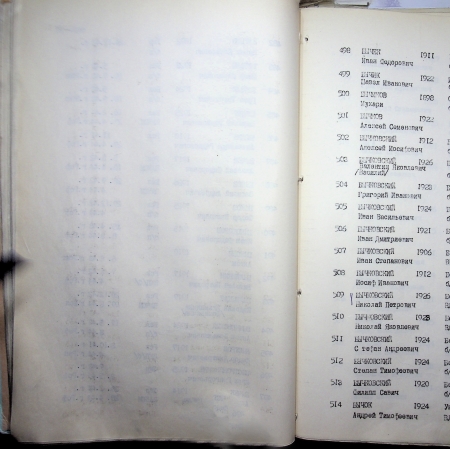 498 БЫЧЕК 1911
Иван Сидорович
499 БЫЧЕК 1922
Павел Иванович
500 1898
501 БЫЧКОВ 1922
Алексей Семенович
502 БЫЧКОВСКИЙ 1912
Алексей Иосифович
503 БЫЧКОВСКИЙ 1926
Валентин Яковлевич
/Василий/
504 БЫЧКОВСКИЙ 1923
Григорий Иванович
505 БЫЧКОВСКИЙ 1924
Иван Васильевич
506 БЫЧКОВСКИЙ 1921
Иван Дмитриевич
507 БЫЧКОВСКИЙ 1906
Иван Степанович
508 БЫЧКОВСКИЙ 1912
Иосиф Иванович
509 БЫЧКОВСКИЙ 1926
Николай Петрович
510 БЫЧКОВСКИЙ 1923
Николай Яковлевич
511 БЫЧКОВСКИЙ 1924
Стефан Андреевич
512 БЫЧКОВСКИЙ 1924
Степан Тимофеевич
513 БЫЧКОВСКИЙ 1920
Филипп Савич
514 БЫЧОК 1924
Андрей Тимофеевич